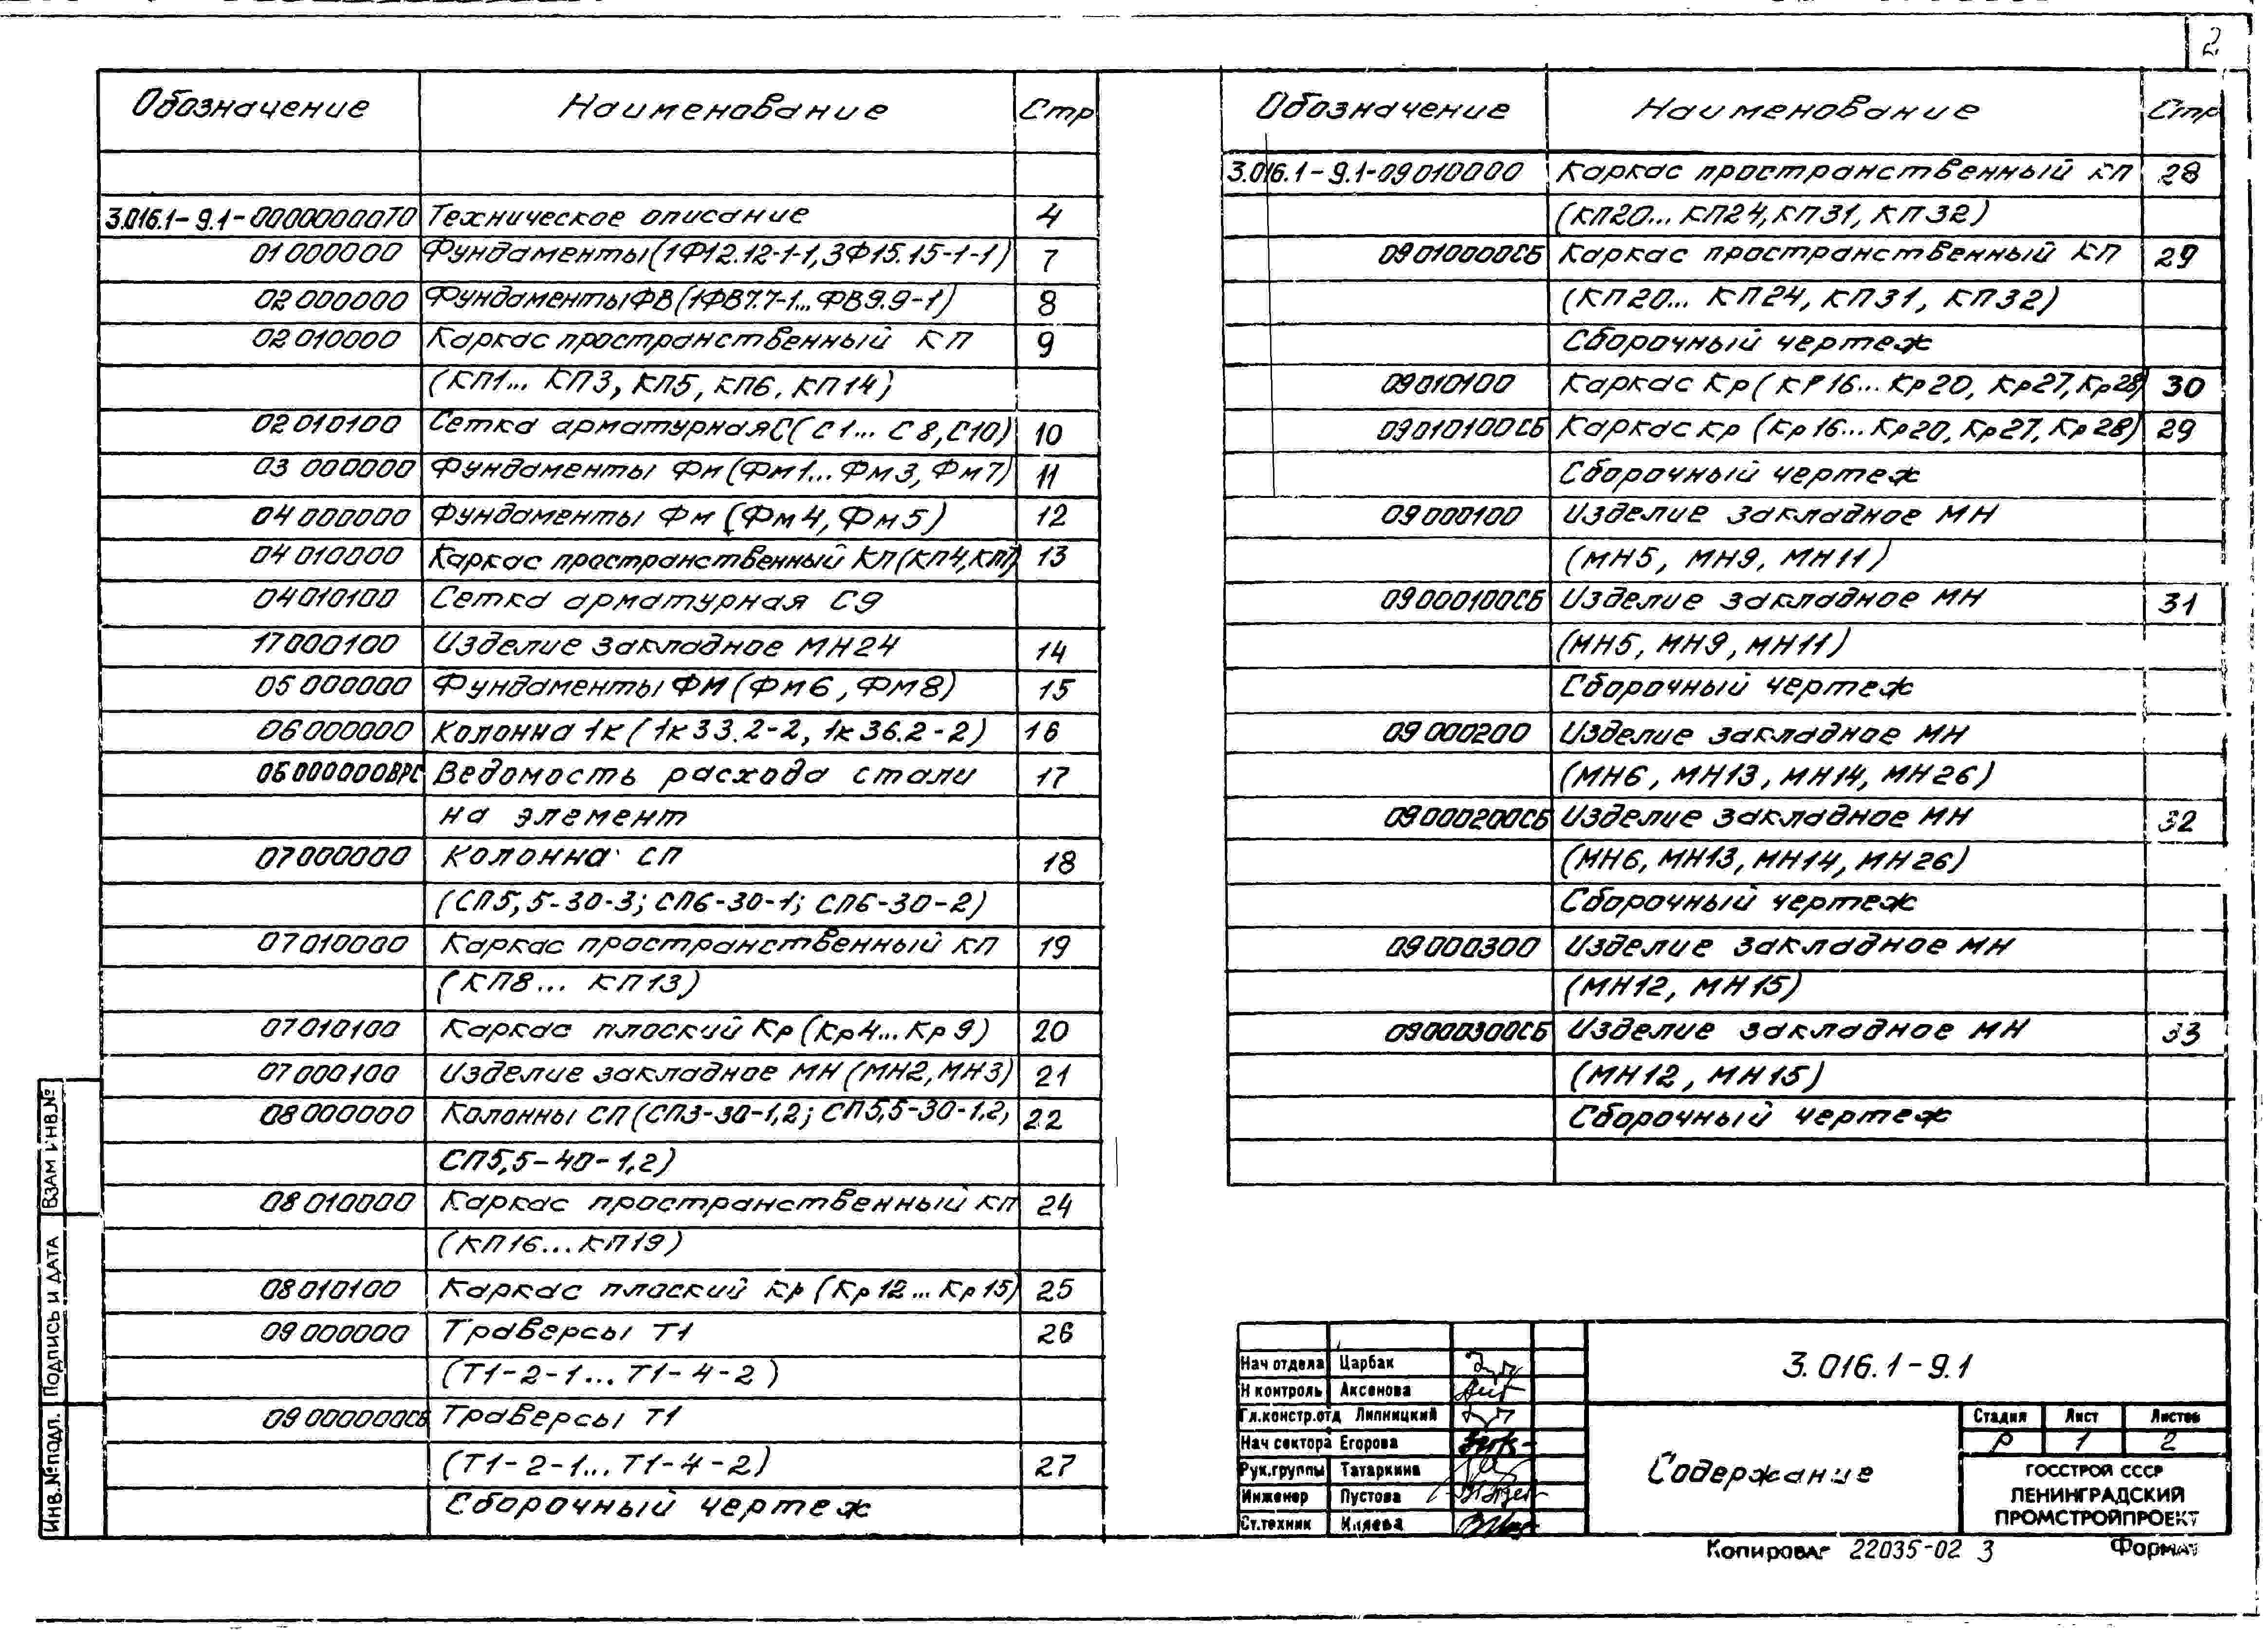 2
Обозначение Наименование Стр
3.016.1-9.1-00000000ТО Техническое описание 4
01000000 Фундаменты (1Ф12.12-1-1, 3Ф15.15-1-1) 7
02000000 Фундаменты ФВ (1ФВ7.7-1... ФВ9.9-1) 8
02010000 Каркас пространственный КП 9
(КП1... КП3, КП5, КП6, КП14)
02010100 Сетка арматурная С (С1... С8, С10) 10
03 000000 Фундаменты Фм (Фм1... Фм3, Фм7) 11
04 000000 Фундаменты Фм (Фм4, Фм5) 12
04 010000 Каркас пространственный КП (КП4, КП7) 13
04010100 Сетка арматурная С9
17000100 Изделие закладное МН24 14
05 000000 Фундаменты ФМ (Фм6, ФМ8) 15
06000000 Колонна 1к (1к33.2-2, 1к36.2-2) 16
06000000ВРС Ведомость расхода стали 17
на элемент
07000000 Колонна СП 18
(СП5,5-30-3; СП6-30-1; СП6-30-2)
07010000 Каркас пространственный КП 19
(КП8... КП13)
07010100 Каркас плоский Кр (Кр4... Кр9) 20
07000100 Изделие закладное МН (МН2, МН3) 21
08000000 Колонны СП (СП3-30-1,2; СП5,5-30-1.2, 22
СП5,5-40-1,2)
08 010000 Каркас пространственный КП 24
(КП16... КП19)
08010100 Каркас плоский Кр (Кр12... Кр15) 25
09 000000 Траверсы Т1 26
(Т1-2-1... Т1-4-2)
09 000000СБ Траверсы Т1
(Т1-2-1... Т1-4-2) 27
Сборочный чертеж
Обозначение Наименование Стр
3.016.1-9.1-09010000 Каркас пространственный КП 28
(КП20... КП24, КП31, КП32)
09010000СБ Каркас пространственный КП 29
(КП20... КП24, КП31, КП32)
Сборочный чертеж
09010100 Каркас Кр (Кр16... Кр20, Кр27, Кр28) 30
09010100СБ Каркас Кр (Кр16... Кр20, Кр27, Кр28) 29
Сборочный чертеж
09000100 Изделие закладное МН
(МН5, МН9, МН11)
09000100СБ Изделие закладное МН 31
(МН5, МН9, МН11)
Сборочный чертеж
09000200 Изделие закладное МН
(МН6, МН13, МН14, МН26)
09000200СБ Изделие закладное МН 32
(МН6, МН13, МН14, МН26)
Сборочный чертеж
09000300 Изделие закладное МН
(МН12, МН15)
09000300СБ Изделие закладное МН 33
(МН12, МН15)
Сборочный чертеж
ВЗАМ ИНВ.№
Подпись и дата
Инв.№подл.
Нач отдела Царбак
Н контроль Аксенова
Гл.констр.отд Липницкий
Нач сектора Егорова
Рук.группы Татаркина
Инженер Пустова
Ст.техник
3.016.1-9.1
Содержание
Стадия Лист Листов
Р 1 2
ГОССТРОЙ СССР
ЛЕНИНГРАДСКИЙ
ПРОМСТРОЙПРОЕКТ
Копировал 22035-02 3 Формат